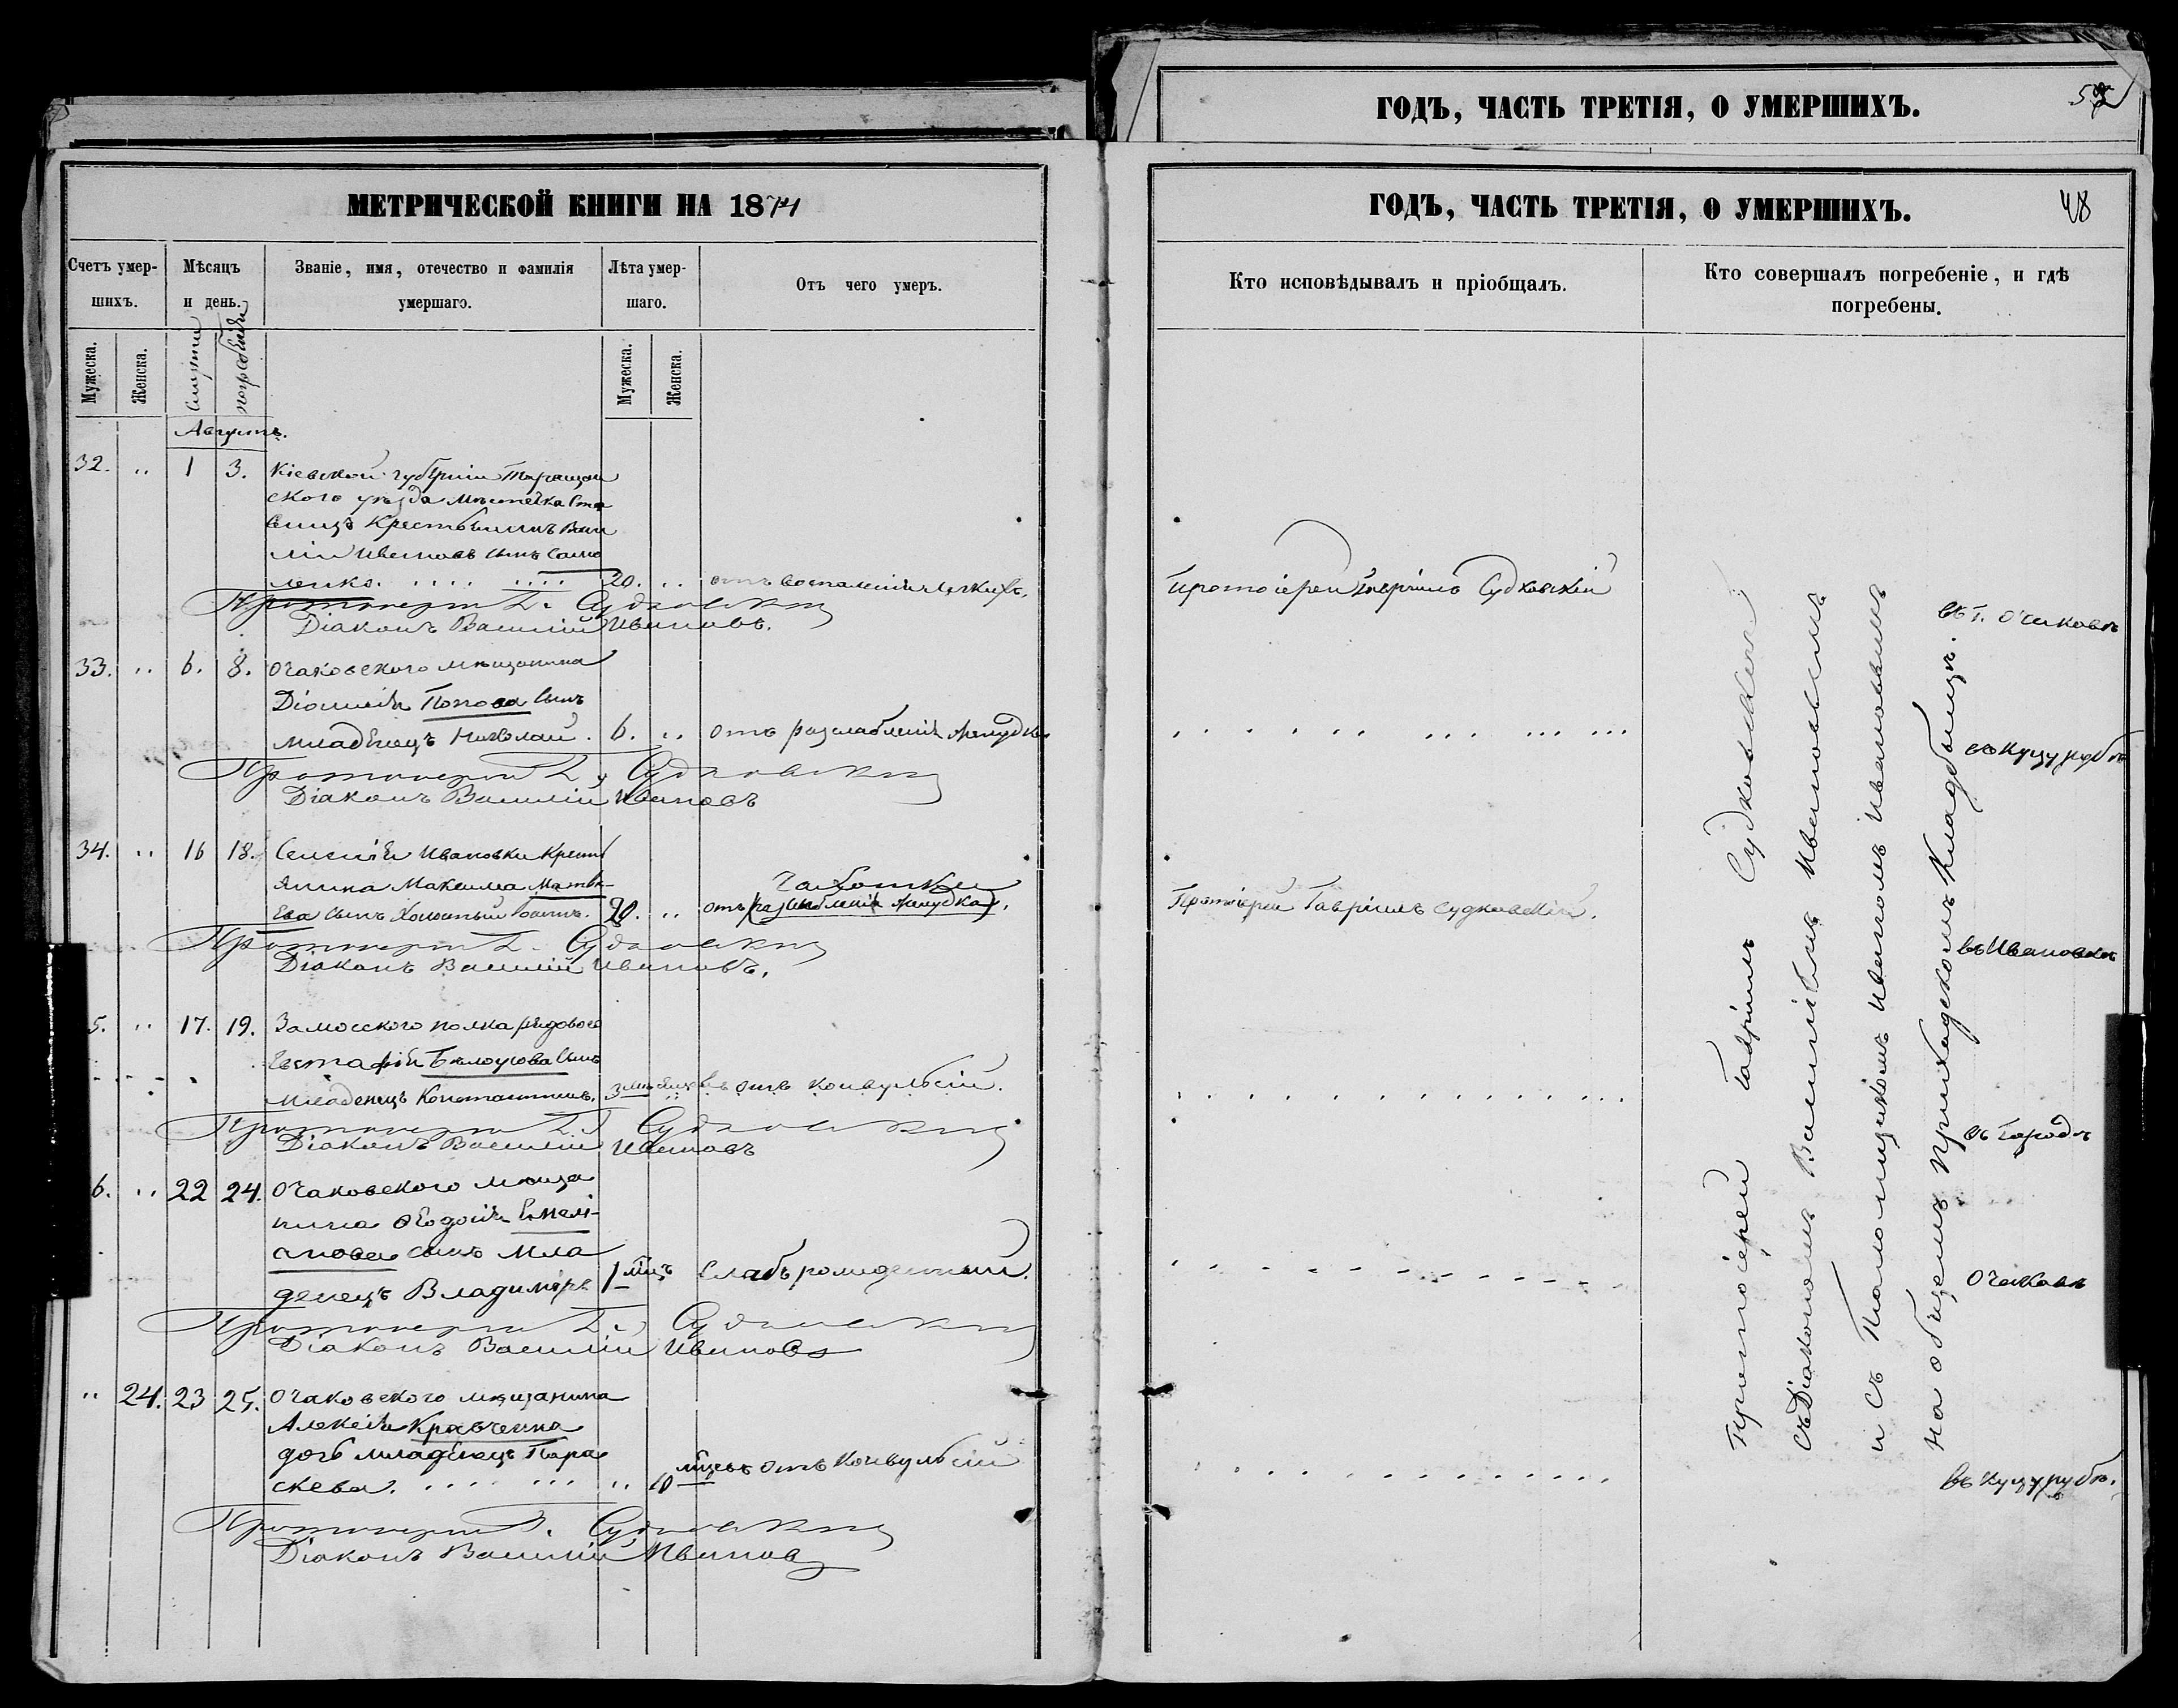 МЕТРИЧЕСКОЙ КНИГИ НА 1874
Счетъ умер-
шихъ.
Мѣсяцъ
и день.
Званіе, имя, отечество и фамилія
умершаго.
Лѣта умер-
шаго.
Отъ чего умеръ.
Мужеска.
Женска.
смерти
погребенія
Мужеска.
Женска.
Августъ.
32. „ 1 3. Кіевской губерніи Таращан
ского уѣзда мѣстечка Ста
вищъ крестьянинъ Васи
лій Ивановъ сынъ Само
ленко. 20. „ отъ воспаленія легкихъ.
Протоіерей Г. Судковскій
Діаконъ Василій Ивановъ.
33. „ 6. 8. Очаковского мѣщанина
Діонисія Попова сынъ
младенецъ Николай. 6. „ отъ разслабленія желудка
Протоіерей Г. Судковскій
Діаконъ Василій Ивановъ
34. „ 16 18. Селенія Ивановки крестъ
янина Максима Матвѣ-
ева сынъ холостый 20. „ отъ (разслабленія желудка).
Чахотки
Протоіерей Г. Судковскій
Діаконъ Василій Ивановъ.
5. „ 17. 19. Замосского полка рядового
Евстафія Бѣлоусова сынъ
младенецъ Константинъ. 3 мѣсяцевъ отъ конвульсій.
Протоіерей Г. Судковскій
Діаконъ Василій Ивановъ
6. „ 22 24. Очаковского мѣща
нина Ѳеодосія Емелі-
анова сынъ мла
денецъ Владиміръ 1 мѣц. слаборожденный.
Протоіерей Г. Судковскій
Діаконъ Василій Ивановъ
„ 24. 23 25. Очаковского мѣщанина
Алексія Кравченка
дочь младенецъ Пара
скева. „ 10 мцевъ отъ конвульсій
Протоіерей Г. Судковскій
Діаконъ Василій Ивановъ
ГОДЪ, ЧАСТЬ ТРЕТІЯ, О УМЕРШИХЪ.
ГОДЪ, ЧАСТЬ ТРЕТІЯ, О УМЕРШИХЪ. 48
Кто исповѣдывалъ и пріобщалъ.
Кто совершалъ погребеніе, и гдѣ
погребены.
Протоіерей Гавріилъ Судковскій
Протоіерей Гавріилъ Судковскій.
Протоіерей Гавріилъ Судковскій
съ Діакономъ Василіемъ Ивановымъ
и съ Псаломщикомъ Иваномъ Ивановымъ
на общемъ приходскомъ кладбищѣ.
въ г. Очаковѣ
въ Куцурубѣ
въ Ивановкѣ
въ городѣ
Очаковѣ
въ Куцурубѣ.